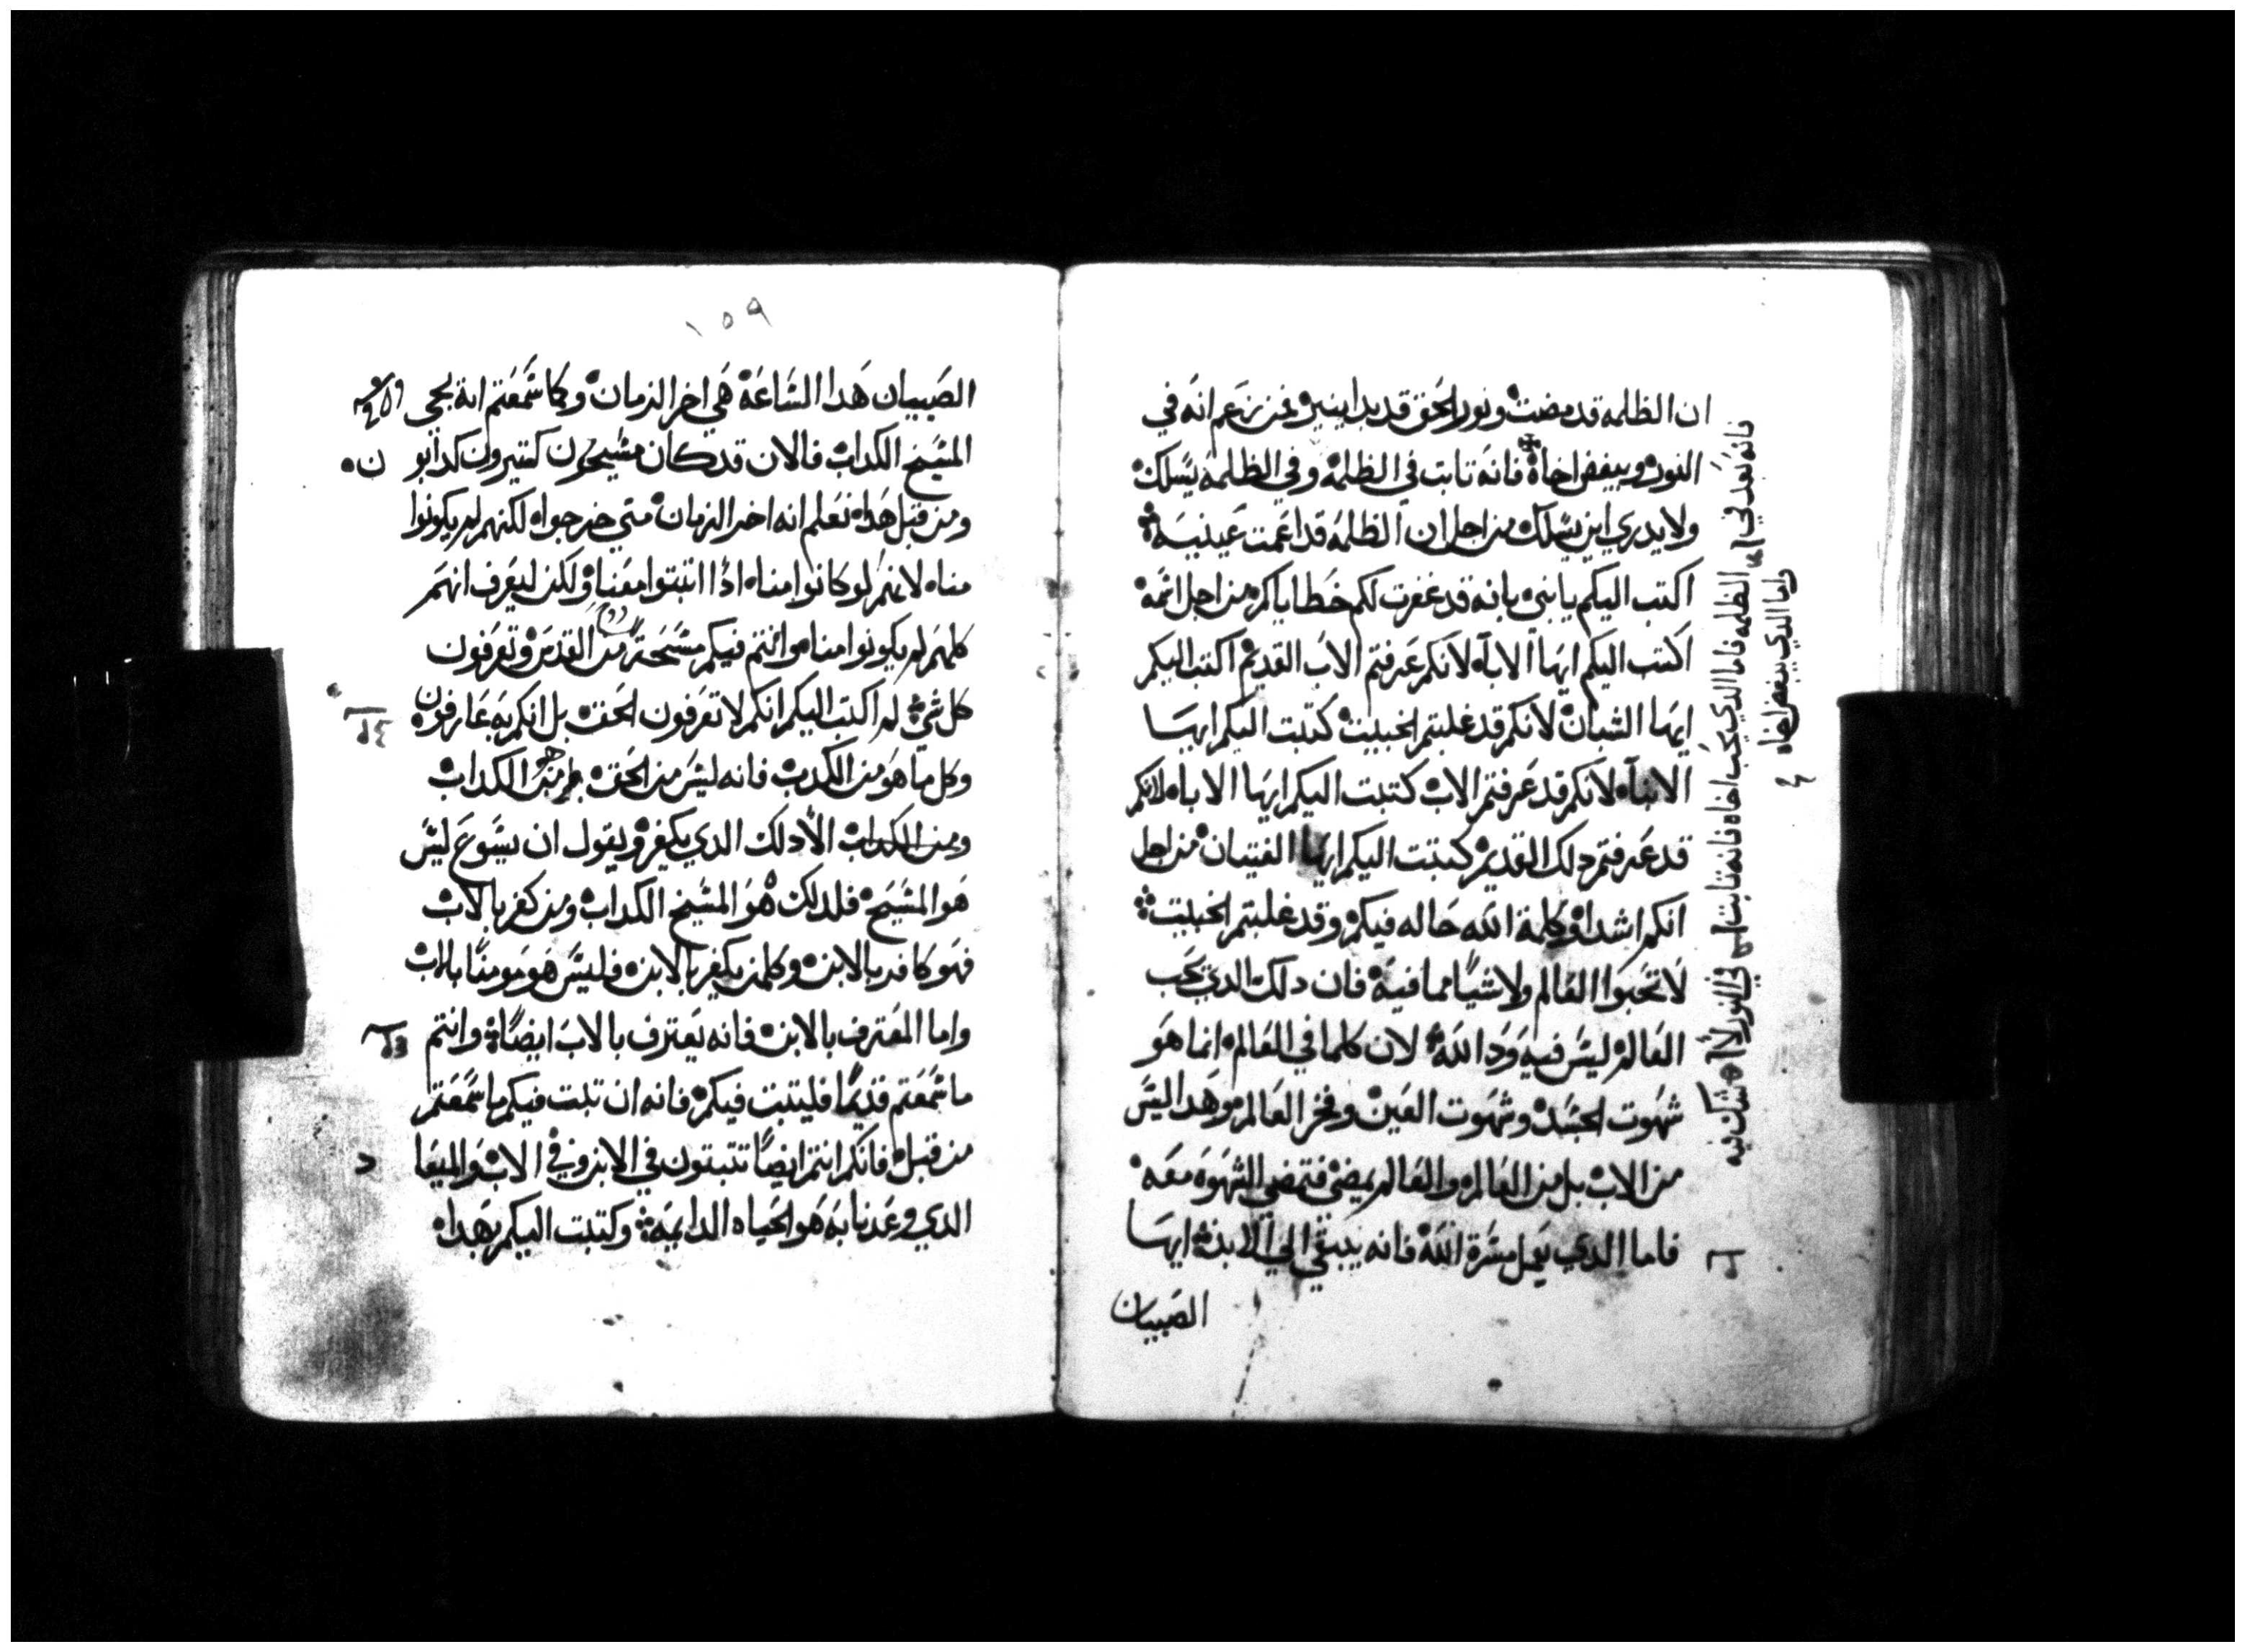 ان الظلمه قد مضت ونور الحق قد بدا ينير من زعم انه في
النور ويبغض اخاه فانه تابت في الظلمه وفي الظلمه يسلك
ولا يدري اين يسلك من اجل ان الظلمه قد اعمت عينيه
اكتب اليكم يا بني بانه قد غفرت لكم خطاياكم من اجل اتمه
اكتب اليكم ايها الابآ لانكم عرفتم الاب القديم اكتب اليكم
ايها الشبان لانكم قد غلبتم الخبيت كتبت اليكم ايها
الابنآ لانكم قد عرفتم الاب كتبت اليكم ايها الابا لانكم
قد عرفتم دلك القديم كتبت اليكم ايها الفتيان من اجل
انكم اشدا وكلمة الله حاله فيكم وقد غلبتم الخبيت
لا تحبوا العالم ولا شيا مما فيه فان دلك الدي يحب
العالم ليس فيه ود الله لان كلما في العالم انما هو
شهوت الجسد وشهوت العين وفخر العالم وهدا ليس
من الاب بل من العالم والعالم يمضي فتمضي الشهوه معه
فاما الدي يعمل مسرة الله فانه يبقي الي الابد ايها
الصبيان
فانه بعد في الظلمه فاما الدي يحب اخاه فانه تابت في النور لا شك فيه
واما الدي يبغض اخاه
١٥٩
الصبيان هدا الساعة هي اخر الزمان وكما سمعتم انة يجي
المسيح الكداب فالان قد كان مسيحون كتيرون كدابو
ن
ومن قبل هدا نعلم انه اخر الزمان متي خرجوا لكنهم لم يكونوا
منا لانهم لو كانوا منا ادا اتبتوا معنا ولكن ليعرف انهم
كلهم لم يكونوا منا وانتم فيكم مسحة من القدس وتعرفون
كل شي لم اكتب اليكم انكم لا تعرفون الحق بل انكم به عارفون
وكل ما هو من الكدب فانه ليس من الحق من هو الكداب
ومن الكداب الا دلك الدي يكفر ويقول ان يسوع ليس
هو المسيح فلدلك هو المسيح الكداب ومن كفر بالاب
فهو كافر بالابن وكلمن يكفر بالابن فليس هو مومنا بالاب
واما المعترف بالابن فانه يعترف بالاب ايضا وانتم
ما سمعتم قديما فليتبت فيكم فانه ان تبت فيكم ما سمعتم
من قبل فانكم انتم ايضا تتبتون في الابن وفي الاب والميعا
د
الدي وعدنا به هو الحياه الدايمه وكتبت اليكم بهدا